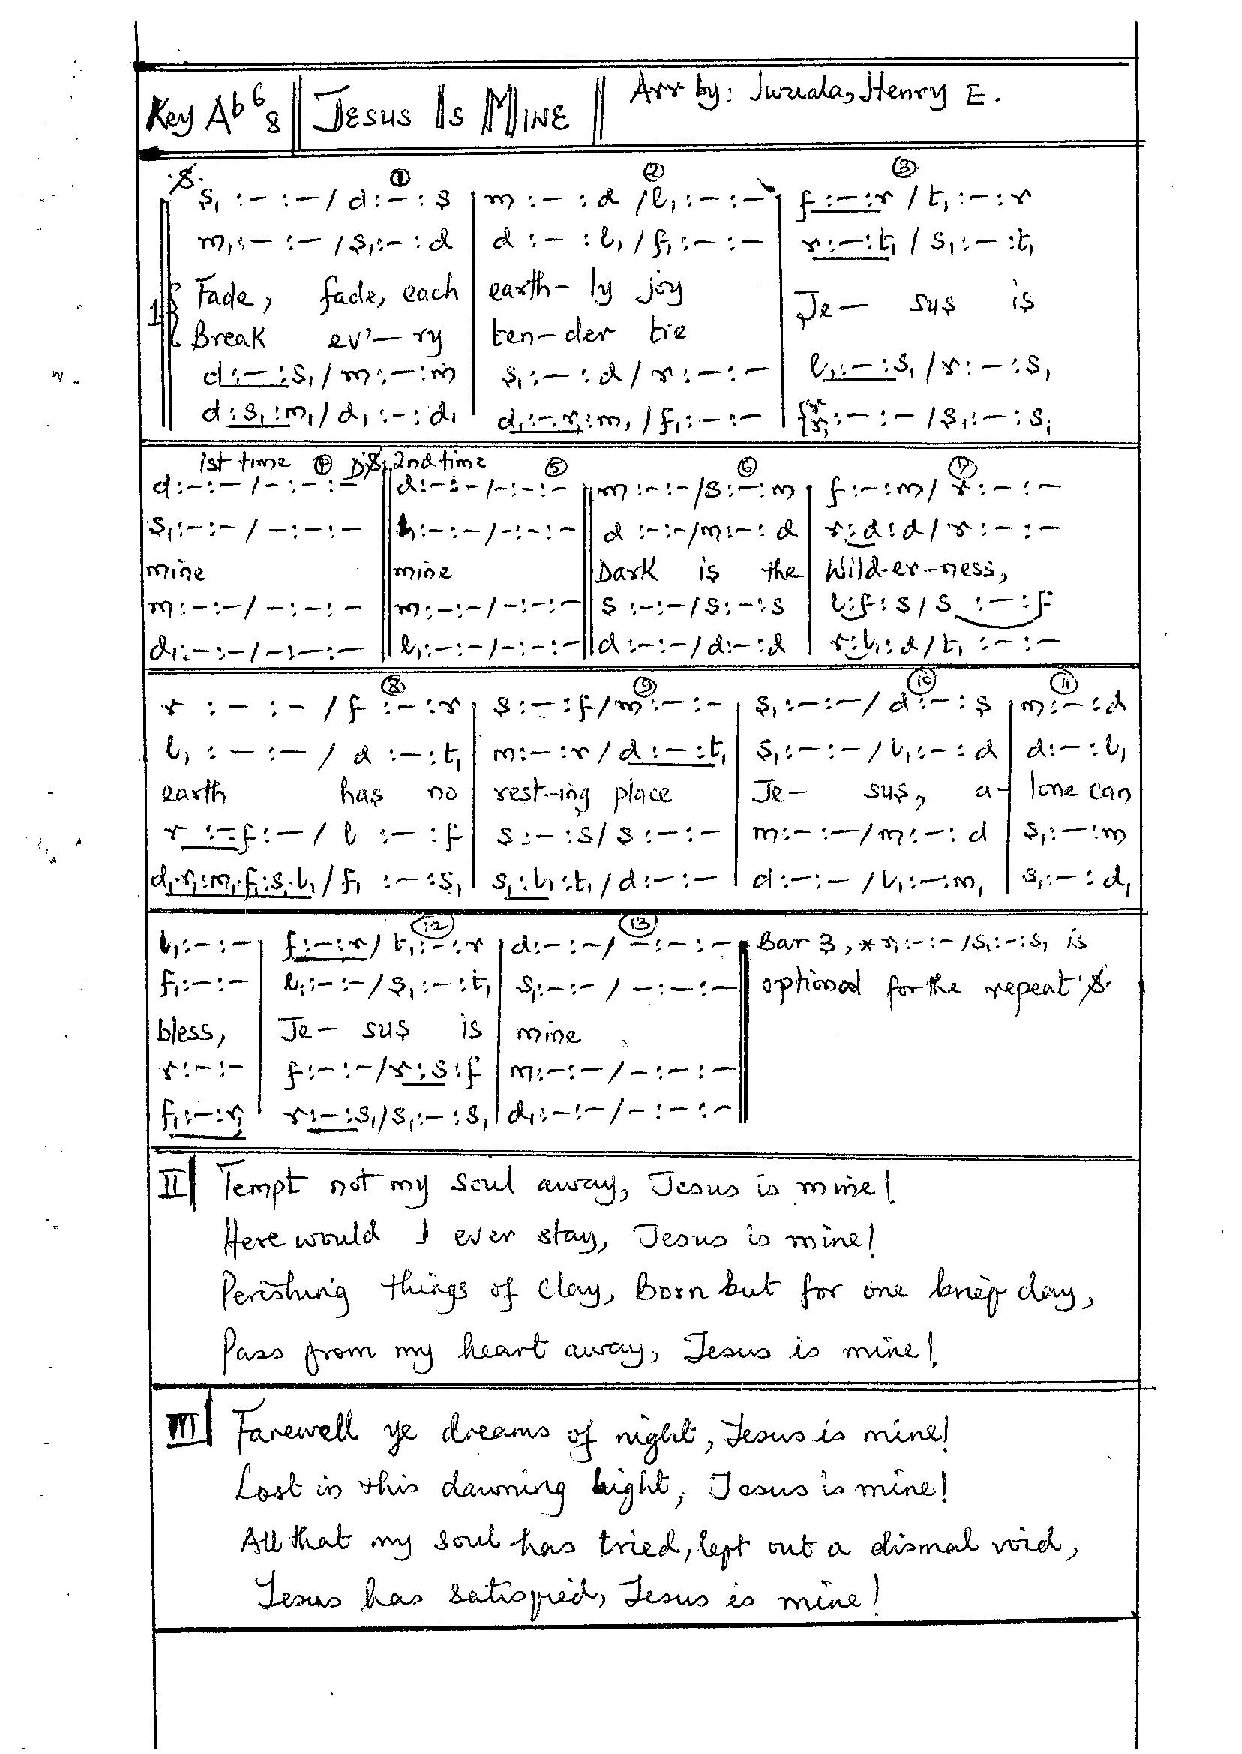 Key Ab 6/8 || JESUS IS MINE || Arr by: Iwuala, Henry E.
𝄋 ① ② ③
s₁ :– :– / d :– : s | m :– : d / l₁ :– :– | f :– : r / t₁ :– : r
m₁ :– :– / s₁ :– : d | d :– : l₁ / f₁ :– :– | r :– : t₁ / s₁ :– : t₁
1 { Fade, fade, each | earth- ly joy | Je- sus is
{ Break ev'- ry | ten-der tie
d :– : s₁ / m :– : m | s₁ :– : d / r :– :– | l₁ :– : s₁ / r :– : s₁
d : s₁ : m₁ / d₁ :– : d₁ | d₁ :– r₁ : m₁ / f₁ :– :– | f₁ r₁ :– :– / s₁ :– : s₁
1st time ④ D𝄋 2nd time ⑤ ⑥ ⑦
d :– :– / – :– :– || d :– :– / – :– :– || m :– :– / s :– : m | f :– : m / r :– :–
s₁ :– :– / – :– :– || l₁ :– :– / – :– :– || d :– :– / m :– : d | r : d : d / r :– :–
mine || mine || Dark is the | Wild-er-ness,
m :– :– / – :– :– || m :– :– / – :– :– || s :– :– / s :– : s | l : f : s / s :– : f
d₁ :– :– / – :– :– || l₁ :– :– / – :– :– || d :– :– / d :– : d | r : l₁ : d / t₁ :– :–
⑧ ⑨ ⑩ ⑪
r :– :– / f :– : r | s :– : f / m :– :– | s₁ :– :– / d :– : s | m :– : d
l₁ :– :– / d :– : t₁ | m :– : r / d :– : t₁ | s₁ :– :– / l₁ :– : d | d :– : l₁
earth has no | rest-ing place | Je- sus, a- | lone can
r :– f :– / l :– : f | s :– : s / s :– :– | m :– :– / m :– : d | s₁ :– : m
d₁. r₁ : m₁. f₁ : s₁. l₁ / f₁ :– : s₁ | s₁ : l₁ : t₁ / d :– :– | d :– :– / l₁ :– : m₁ | s₁ :– : d₁
⑫ ⑬
l₁ :– :– | f :– : r / t₁ :– : r | d :– :– / – :– :– || Bar 3, * r₁ :– :– / s₁ :– : s₁ is
f₁ :– :– | l₁ :– :– / s₁ :– : t₁ | s₁ :– :– / – :– :– || optional for the repeat 𝄋
bless, | Je- sus is | mine
r :– :– | f :– :– / r : s : f | m :– :– / – :– :– ||
f₁ :– : r₁ | r :– : s₁ / s₁ :– : s₁ | d₁ :– :– / – :– :– ||
II | Tempt not my soul away, Jesus is mine!
Here would I ever stay, Jesus is mine!
Perishing things of clay, Born but for one brief day,
Pass from my heart away, Jesus is mine!
III | Farewell ye dreams of night, Jesus is mine!
Lost in this dawning light, Jesus is mine!
All that my soul has tried, left out a dismal void,
Jesus has satisfied, Jesus is mine!